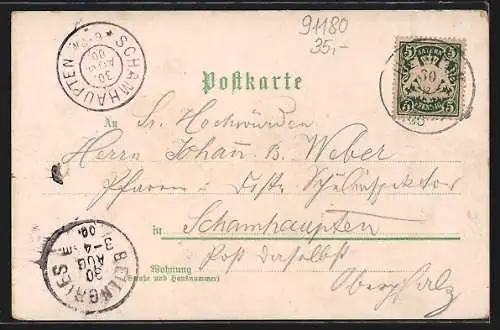 91180
35,-
SCHAMHAUPTEN
30.
AUG.
00
BAYERN
5 5
5 5
30
Postkarte
An Sr. Hochwürden
Herrn Johann B. Weber
Pfarrer u. Distr. Schulinspektor
in Schamhaupten
Post daselbst
Wohnung
(Straße und Hausnummer)
Oberpfalz
BEILNGRIES
30
AUG
3-4
00.